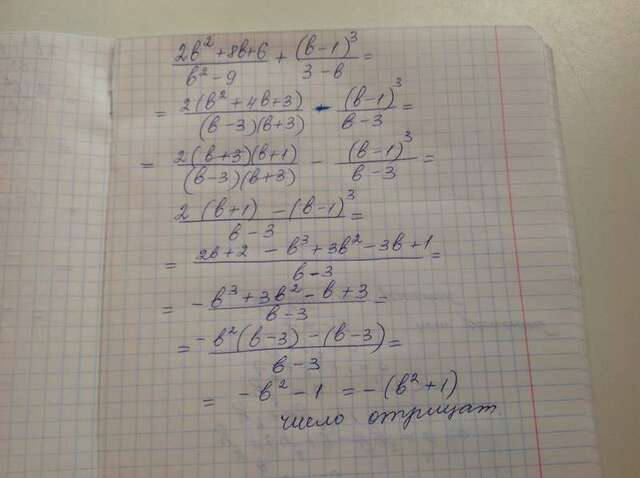 (2b² + 8b + 6)/(b² - 9) + (b - 1)³/(3 - b) =
= 2(b² + 4b + 3)/((b - 3)(b + 3)) - (b - 1)³/(b - 3) =
= 2(b + 3)(b + 1)/((b - 3)(b + 3)) - (b - 1)³/(b - 3) =
(2(b + 1) - (b - 1)³)/(b - 3) =
= (2b + 2 - b³ + 3b² - 3b + 1)/(b - 3) =
= (-b³ + 3b² - b + 3)/(b - 3) =
= (-b²(b - 3) - (b - 3))/(b - 3) =
= -b² - 1 = -(b² + 1)
число отрицат